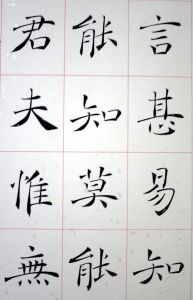 言甚易知
能知莫能
君夫惟無